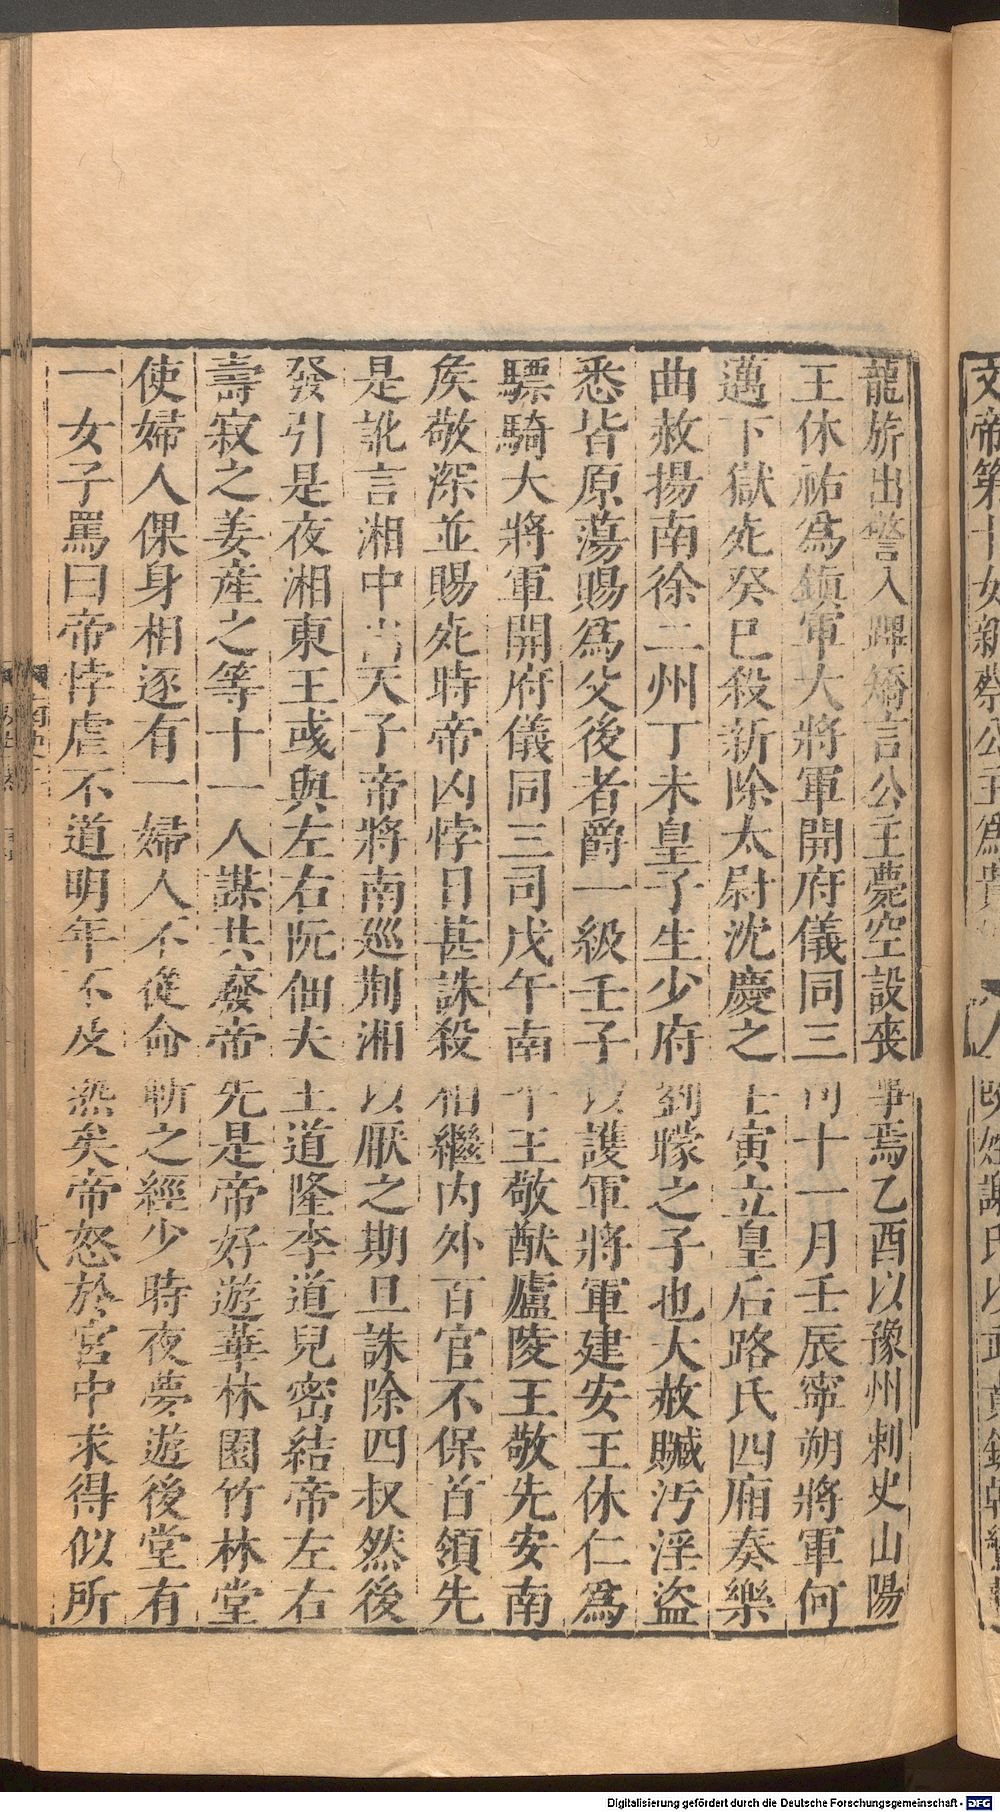 龍旂出警入蹕矯言公主薨空設喪事焉乙酉以豫州刺史山陽
王休祐爲鎮軍大將軍開府儀同三司十一月壬辰寧朔將軍何
邁下獄死癸巳殺新除太尉沈慶之壬寅立皇后路氏四廂奏樂
曲赦揚南徐二州丁未皇子生少府劉曚之子也大赦贓汚淫盜
悉皆原蕩賜爲父後者爵一級壬子以護軍將軍建安王休仁爲
驃騎大將軍開府儀同三司戊午南平王敬猷廬陵王敬先安南
侯敬深並賜死時帝凶悖日甚誅殺相繼內外百官不保首領先
是訛言湘中出天子帝將南巡荆湘以厭之期旦誅除四叔然後
發引是夜湘東王彧與左右阮佃夫王道隆李道兒密結帝左右
壽寂之姜産之等十一人謀共廢帝先是帝好遊華林園竹林堂
使婦人倮身相逐有一婦人不從命斬之經少時夜夢遊後堂有
一女子罵曰帝悖虐不道明年不及熟矣帝怒於宮中求得似所
十八
Digitalisierung gefördert durch die Deutsche Forschungsgemeinschaft - DFG